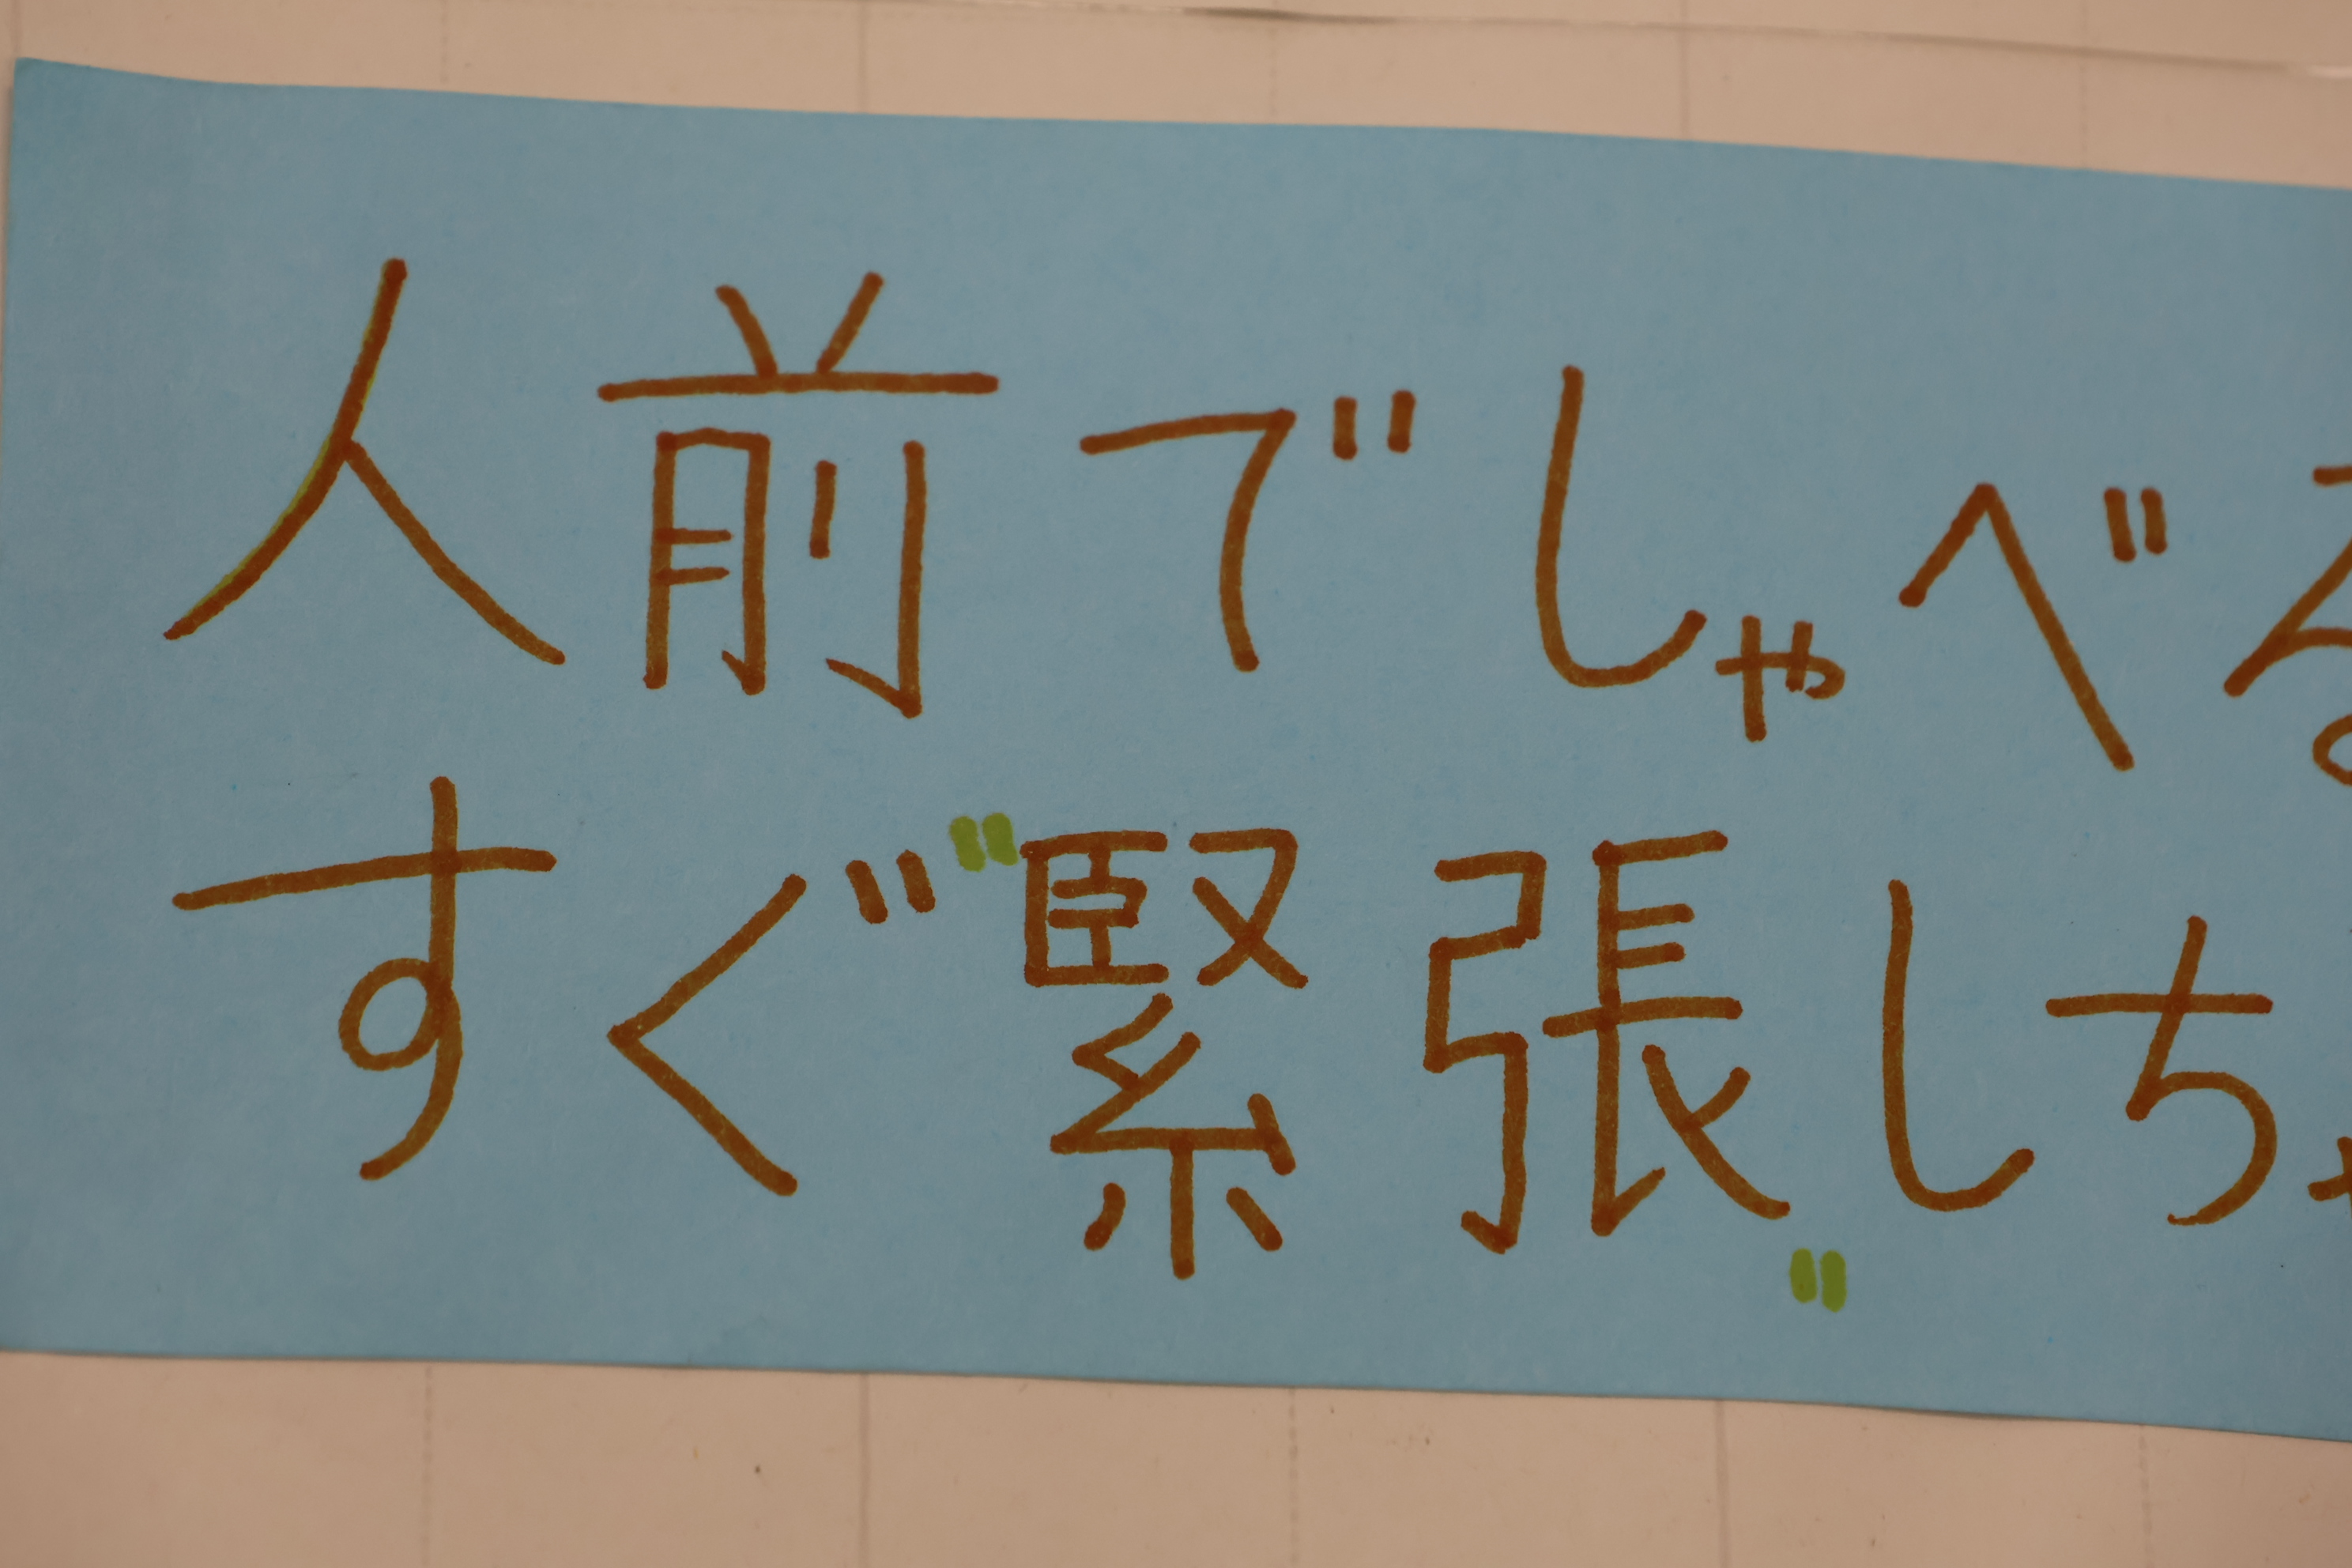 人前でしゃべる
すぐ"緊張"しちゃ